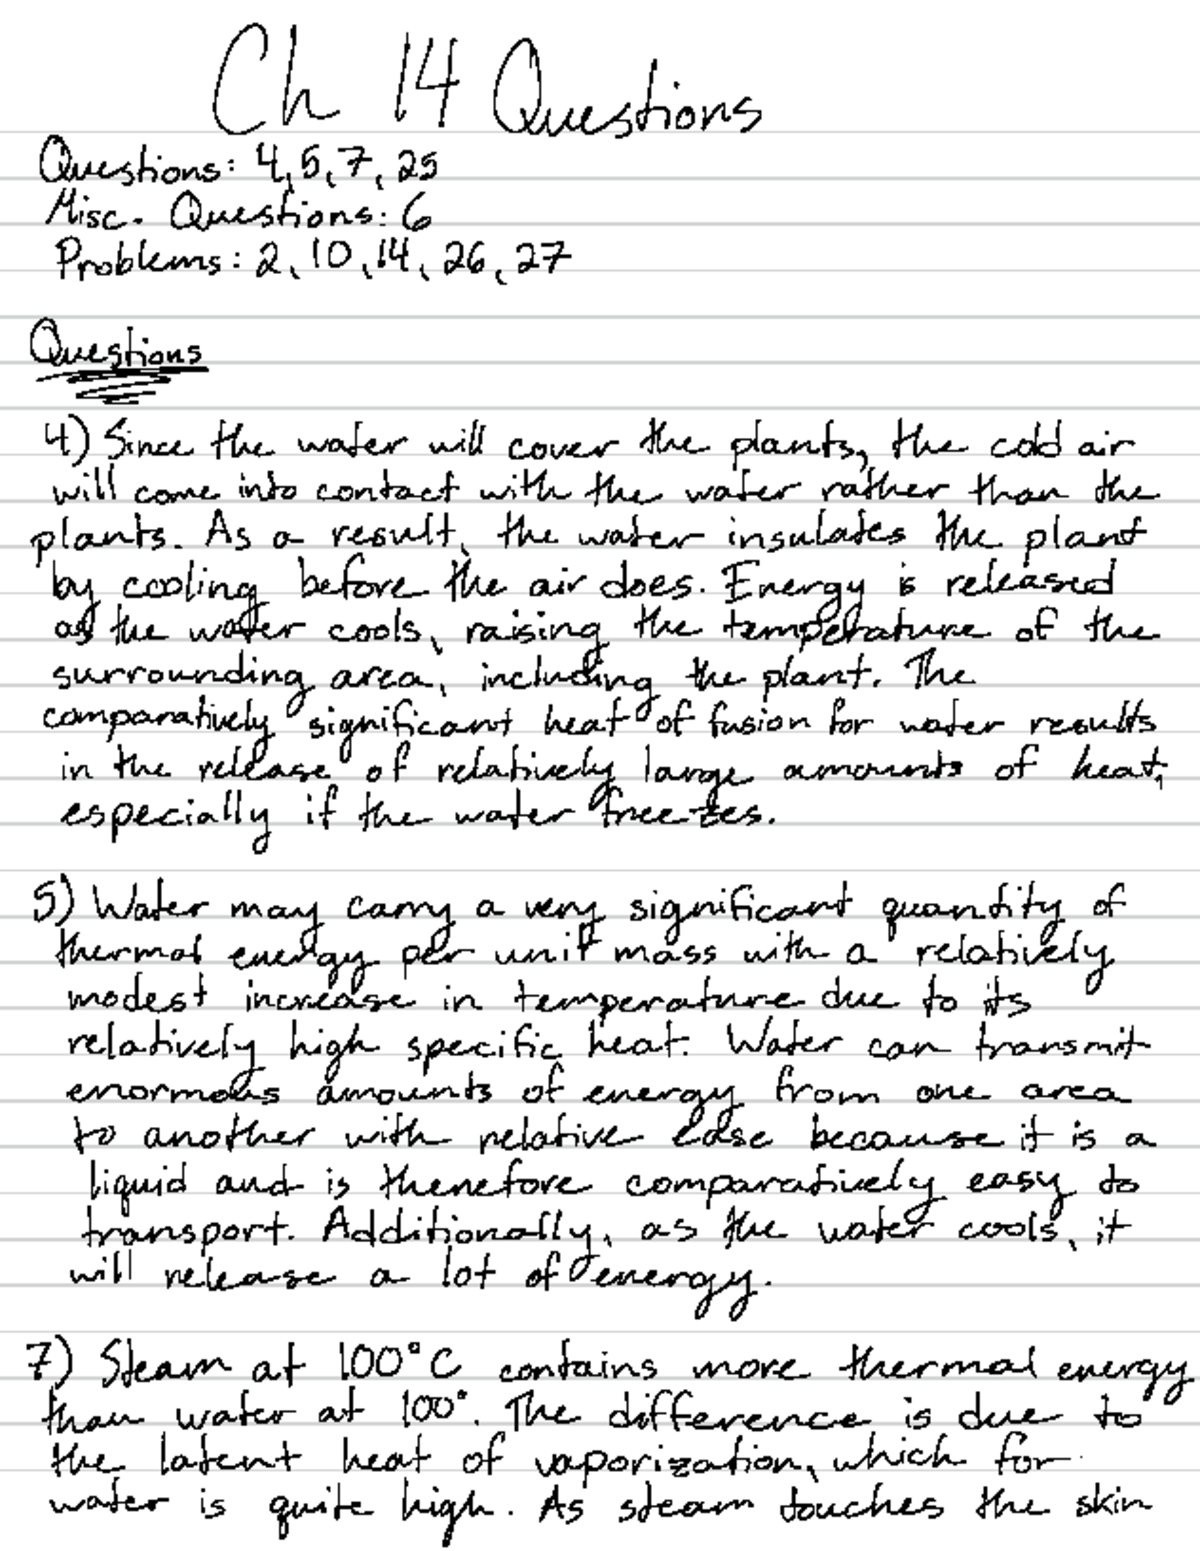 Ch 14 Questions
Questions: 4, 5, 7, 25
Misc. Questions: 6
Problems: 2, 10, 14, 26, 27
Questions
4) Since the water will cover the plants, the cold air
will come into contact with the water rather than the
plants. As a result, the water insulates the plant
by cooling before the air does. Energy is released
as the water cools, raising the temperature of the
surrounding area, including the plant. The
comparatively significant heat of fusion for water results
in the release of relatively large amounts of heat,
especially if the water freezes.
5) Water may carry a very significant quantity of
thermal energy per unit mass with a relatively
modest increase in temperature due to its
relatively high specific heat. Water can transmit
enormous amounts of energy from one area
to another with relative ease because it is a
liquid and is therefore comparatively easy to
transport. Additionally, as the water cools, it
will release a lot of energy.
7) Steam at 100°C contains more thermal energy
than water at 100°. The difference is due to
the latent heat of vaporization, which for
water is quite high. As steam touches the skin